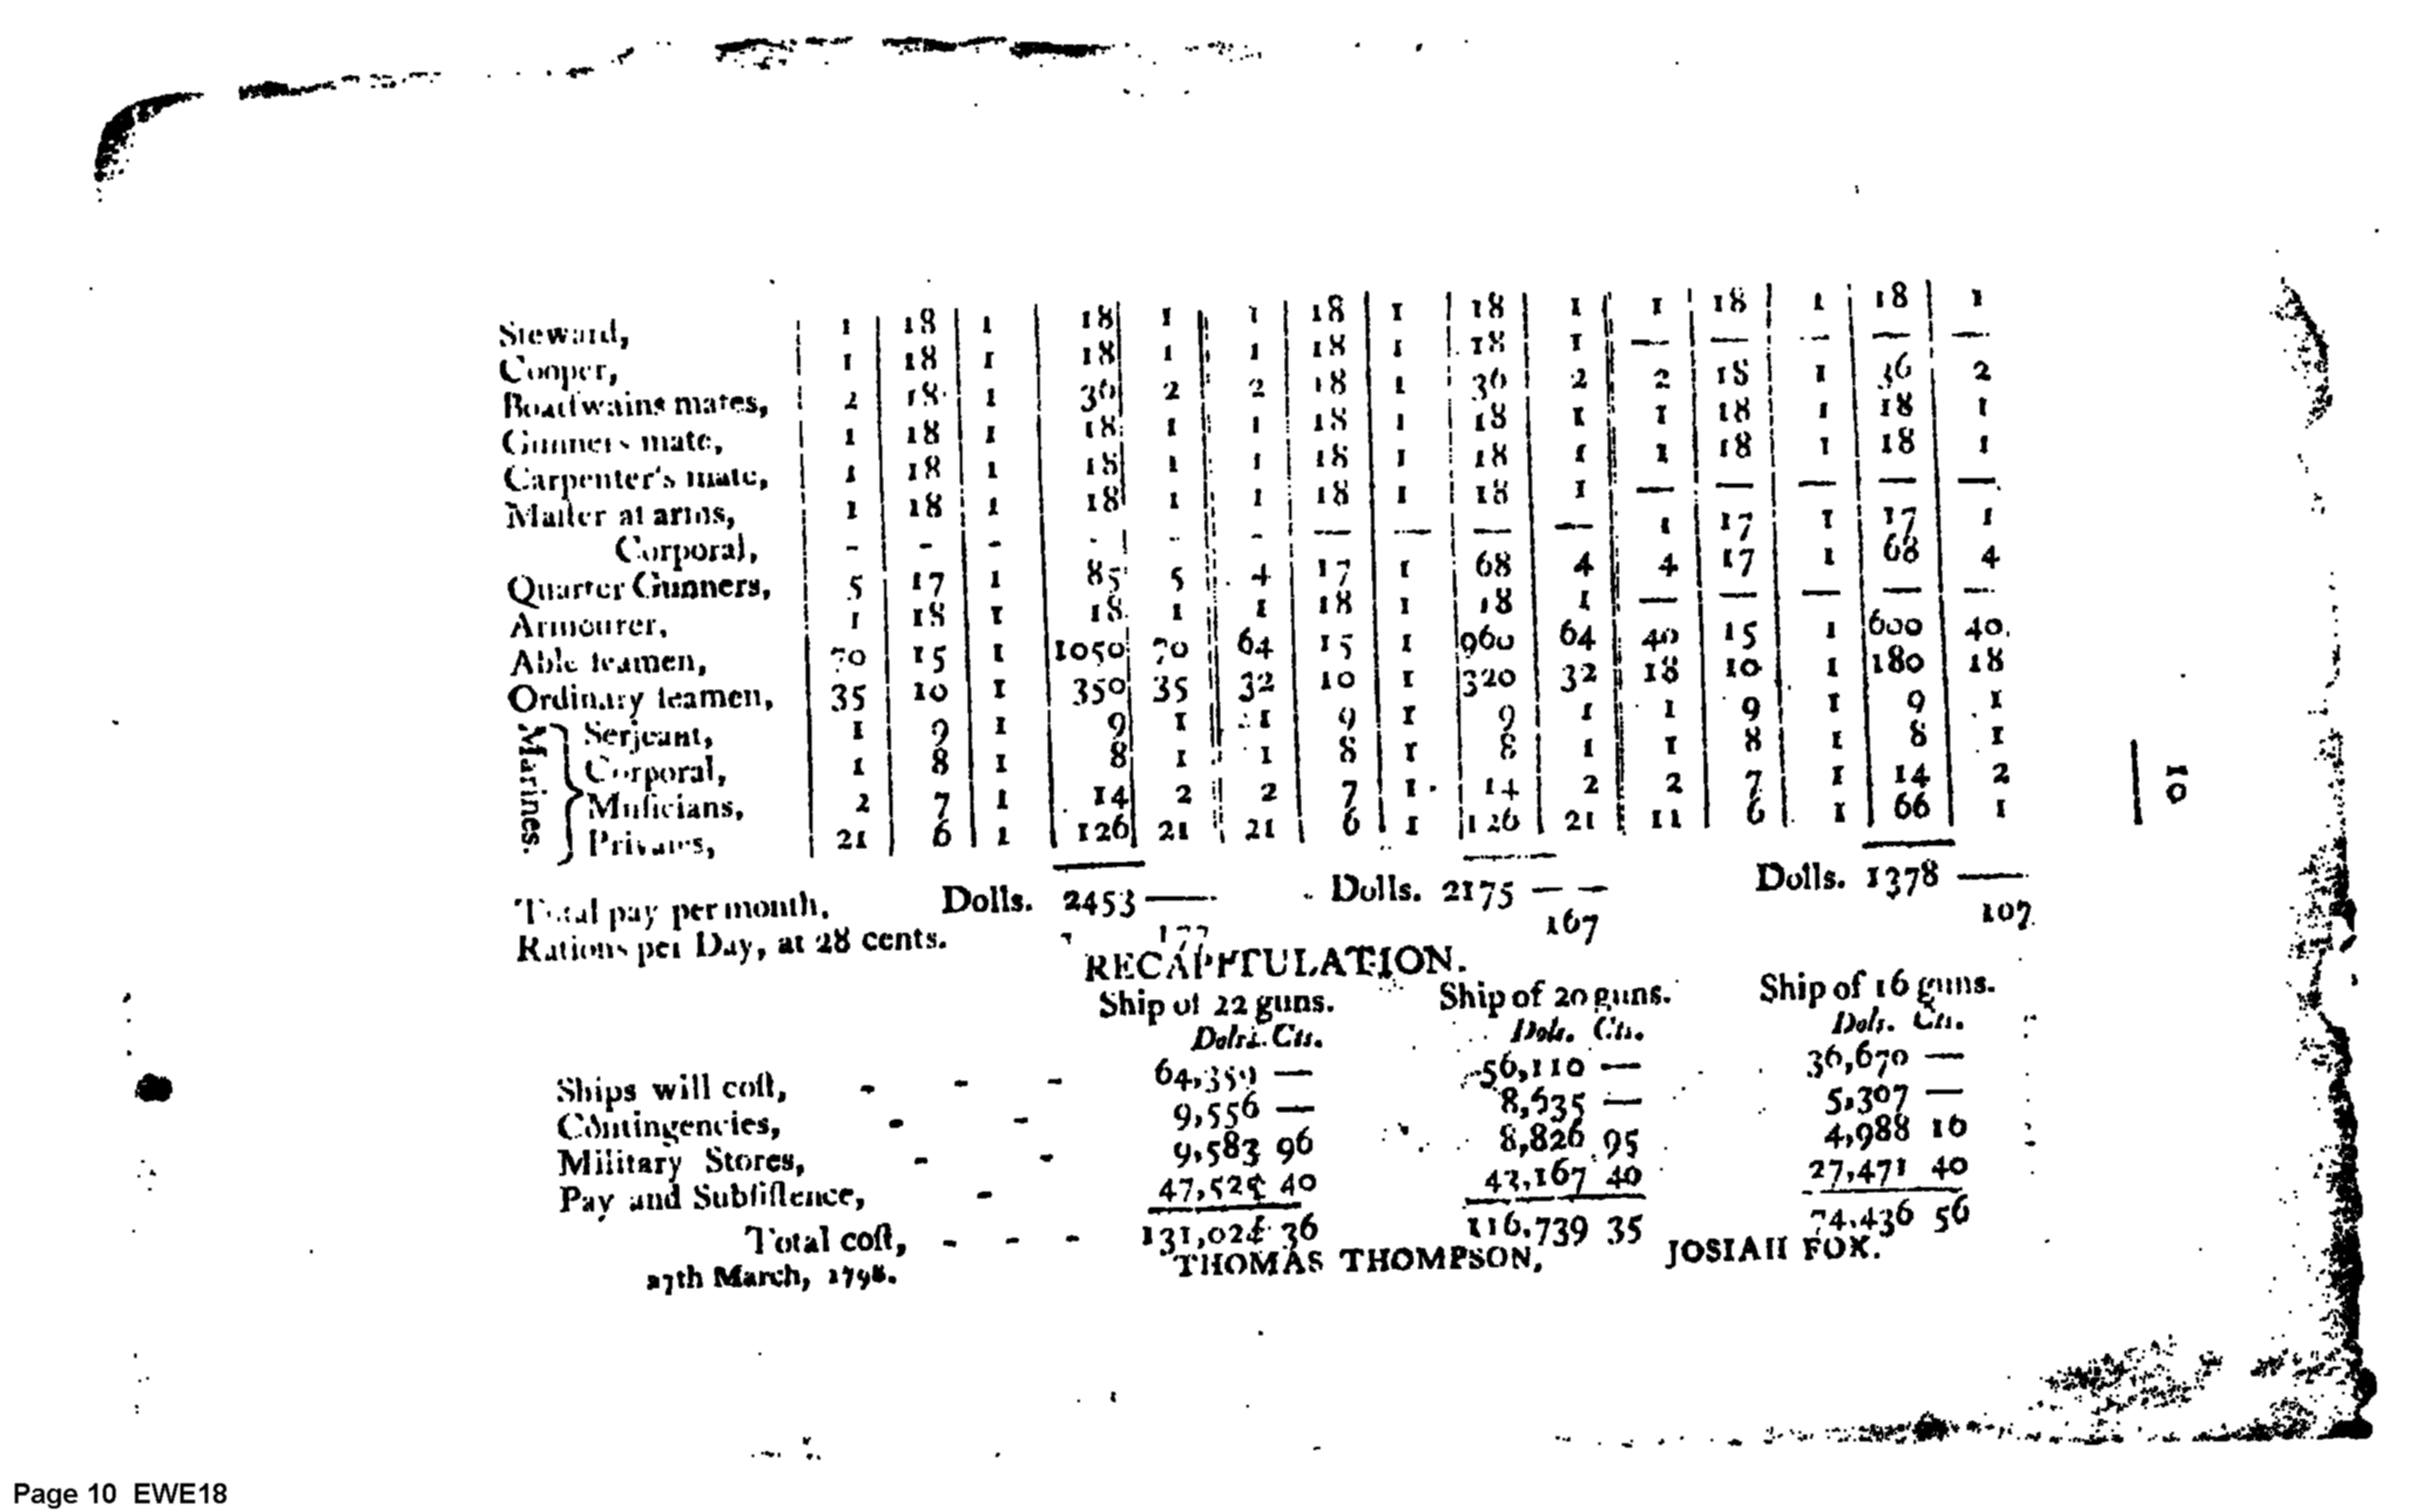 Steward, 1 18 1 18 1 1 18 1 18 1 1 18 1 18 1
Cooper, 1 18 1 18 1 1 18 1 18 1 — — — — —
Boatſwains mates, 2 18 1 36 2 2 18 1 36 2 2 18 1 36 2
Gunners mate, 1 18 1 18 1 1 18 1 18 1 1 18 1 18 1
Carpenter's mate, 1 18 1 18 1 1 18 1 18 1 1 18 1 18 1
Maſter at arms, 1 18 1 18 1 1 18 1 18 1 — — — — —
Corporal, - - - - - - — — — — 1 17 1 17 1
Quarter Gunners, 5 17 1 85 5 4 17 1 68 4 4 17 1 68 4
Armourer, 1 18 1 18 1 1 18 1 18 1 — — — — —
Able ſeamen, 70 15 1 1050 70 64 15 1 960 64 40 15 1 600 40
Ordinary ſeamen, 35 10 1 350 35 32 10 1 320 32 18 10 1 180 18
Marines.
Serjeant, 1 9 1 9 1 1 9 1 9 1 1 9 1 9 1
Corporal, 1 8 1 8 1 1 8 1 8 1 1 8 1 8 1
Muſicians, 2 7 1 14 2 2 7 1 14 2 2 7 1 14 2
Privates, 21 6 1 126 21 21 6 1 126 21 11 6 1 66 1
Total pay per month. Dolls. 2453 — Dolls. 2175 — — Dolls. 1378 —
Rations per Day, at 28 cents. 177 167 107
RECAPITULATION.
Ship of 22 guns. Ship of 20 guns. Ship of 16 guns.
Dols. Cts. Dols. Cts. Dols. Cts.
Ships will coſt, - - - 64,359 — 56,110 — 36,670 —
Contingencies, - - 9,556 — 8,635 — 5,307 —
Military Stores, - - 9,583 96 8,826 95 4,988 16
Pay and Subſiſtence, - 47,525 40 43,167 40 27,471 40
Total coſt, - - - 131,024 36 116,739 35 74,436 56
27th March, 1798. THOMAS THOMPSON, JOSIAH FOX.
10
Page 10 EWE18